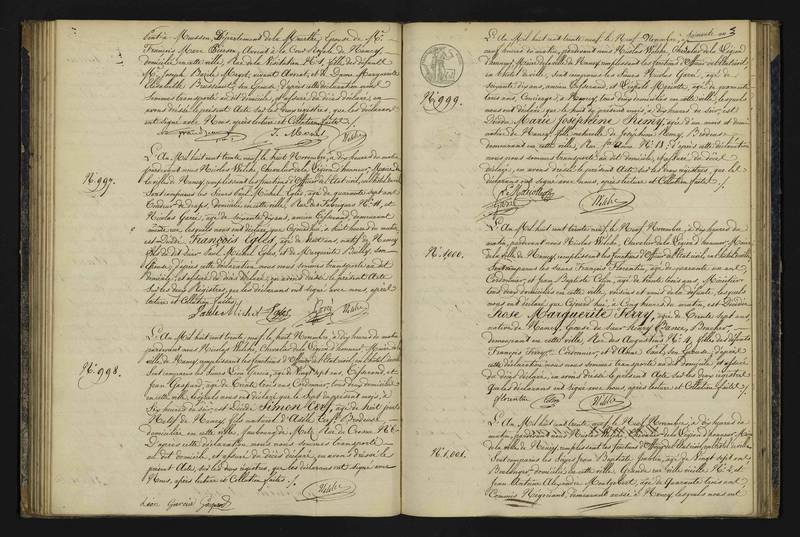 Pont-à-Mousson, Département de la Meurthe, Epouse de Mr.
François Marc Pierson, Avocat à la Cour Royale de Nancy,
domiciliée en cette ville, Rue de la Visitation No. 1, fille des défunts
Mr. Joseph
Elisabeth son Epouse, d'après cette déclaration nous
sommes transporté au dit domicile, et assuré du décès déclaré, en
avons dressé le présent Acte sur les deux registres, que les déclarants
ont signé avec Nous, après lecture et Collation faites
No. 997.
L'An Mil huit cent trente neuf, le huit Novembre, à dix heures du matin
pardevant nous Nicolas Welche, Chevalier de la Légion d'honneur, Maire de
la ville de Nancy, remplissant les fonctions d'Officier de l'Etat civil, en l'hôtel de ville
Sont comparus les Sieurs Paul Michel Eglès, âgé de quarante sept ans
Tondeur de draps, domicilié en cette ville, Rue des Fabriques No. 11, et
Nicolas Garé, âgé de soixante dix ans, ancien Tisserand, demeurant
même rue, lesquels nous ont déclaré que Cejourd'hui, à huit heures du matin
est décédé François Eglès, âgé de huit ans, natif de Nancy
fils du dit Sieur Paul Michel Eglès, et de Marguerite son
Epouse, d'après cette déclaration nous nous sommes transporté au dit
domicile, et assuré du décès déclaré, en avons dressé le présent Acte
sur les deux Registres, que les déclarants ont signé avec nous, après
lecture et Collation faites
Paul Michel Eglès Garé Welche
No. 998.
L'An Mil huit cent trente neuf, le huit Novembre, à dix heures du matin,
pardevant nous Nicolas Welche, Chevalier de la Légion d'honneur, Maire de la
ville de Nancy, remplissant les fonctions d'Officier de l'Etat civil, en l'hôtel de ville
sont comparus les Sieurs Léon Garcia, âgé de Vingt sept ans, Tisserand, et
Jean Gaspard, âgé de trente trois ans Cordonnier, tous deux domiciliés
en cette ville, lesquels nous ont déclaré que le Sept du présent mois, à
Six heures du soir, est décédé Simon Cerf, âgé de huit jours
Natif de Nancy, fils naturel d' Cerf, Brodeuse
domiciliée en cette ville, faubourg de Metz, Rue de Crosne No.
D'après cette déclaration nous nous sommes transporté
au dit domicile, et assuré du décès déclaré, en avons dressé le
présent Acte, sur les deux registres, que les déclarants ont signé avec
Nous, après lecture et Collation faites
Welche
Léon Garcia Gaspard
3
No. 999.
L'An Mil huit cent trente neuf, le Neuf Novembre, à
neuf heures du matin, pardevant nous Nicolas Welche, Chevalier de la Légion
d'honneur, Maire de la ville de Nancy, remplissant les fonctions d'Officier de l'Etat civil,
en l'hôtel de ville, sont comparus les Sieurs Nicolas Garé, âgé de
Soixante dix ans, ancien Tisserand, et Léopold Mariotte, âgé de quarante
trois ans, Concierge, à Nancy, tous deux demeurants en cette ville, lesquels
nous ont déclaré que le huit du présent mois, à dix heures du soir, est
Décédée Marie Joséphine Remy, âgée d'un mois et demi
native de Nancy, fille naturelle de Joséphine Remy, Brodeuse
demeurant en cette ville, Rue Ste. Anne No. 13; d'après cette déclaration
nous nous sommes transporté au dit domicile, et assuré du décès
déclaré, en avons dressé le présent Acte sur les deux registres, que les
déclarants ont signé avec nous, après lecture et Collation faites
Garé Welche
No. 1000.
L'An Mil huit cent trente neuf, le Neuf Novembre, à dix heures du
matin, pardevant nous Nicolas Welche, Chevalier de la Légion d'honneur, Maire
de la ville de Nancy, remplissant les fonctions d'Officier de l'Etat civil, en l'hôtel de ville,
Sont comparus les Sieurs François Florentin, âgé de quarante un ans
Cordonnier, et Jean Baptiste Colin, âgé de trente trois ans, Menuisier
tous deux domiciliés en cette ville, voisins et amis de la défunte, lesquels
nous ont déclaré que Cejourd'hui, à Cinq heures du matin, est Décédée
Rose Marguerite Ferry, âgée de trente sept ans,
native de Nancy, Epouse de Sieur Henry
demeurant en cette ville, Rue des Augustins No. 4, fille des défunts
François Ferry, Cordonnier, et d'Anne son Epouse, d'après
cette déclaration nous nous sommes transporté au dit domicile, et assuré
du décès déclaré, en avons dressé le présent Acte sur les deux registres
que les déclarants ont signé avec nous, après lecture et Collation faites
florentin Colin Welche
No. 1,001.
L'An Mil huit cent trente neuf, le Neuf Novembre, à dix heures du
matin, pardevant nous Nicolas Welche, Chevalier de la Légion d'honneur, Maire
de la ville de Nancy, remplissant les fonctions d'Officier de l'Etat civil, en l'hôtel de ville
Sont comparus les Sieurs Jean Baptiste âgé de Vingt sept ans
Boulanger, domicilié en cette ville, Grande rue ville vieille No. 2, et
Jean Antoine Alexandre âgé de Quarante trois ans
Commis Négociant, demeurant aussi à Nancy, lesquels nous ont